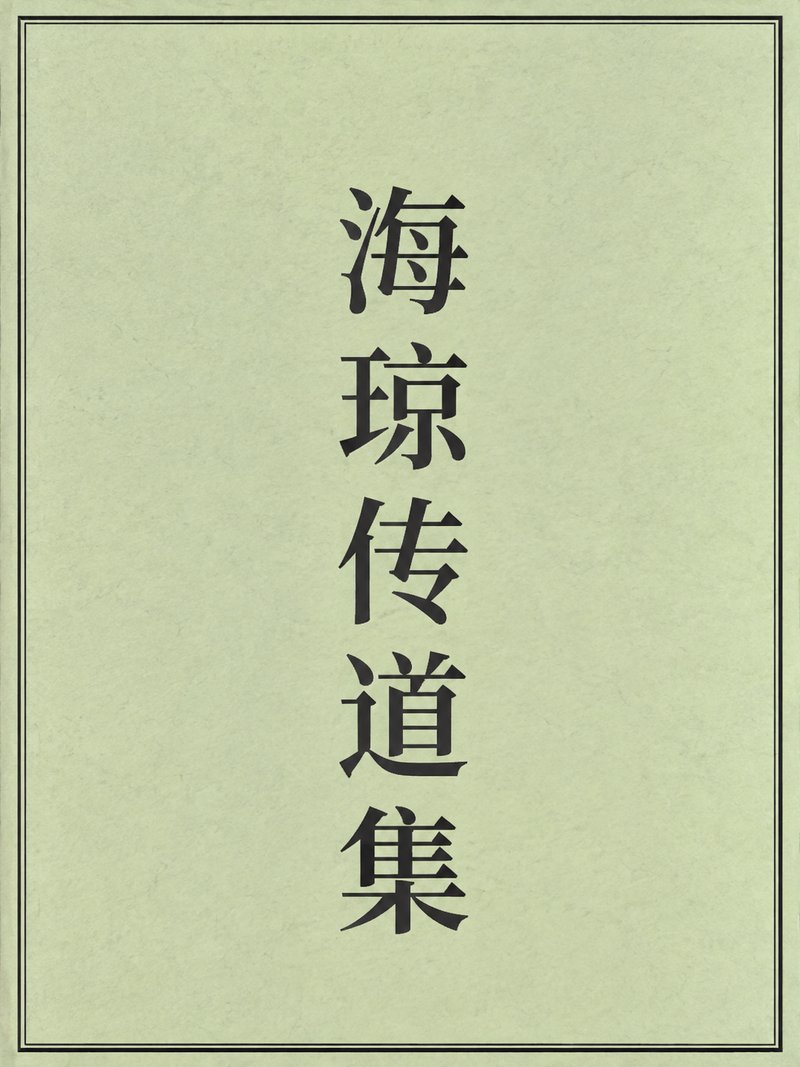 海琼传道集